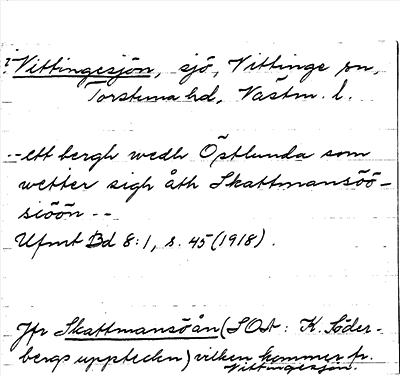 ? Vittingesjön, sjö, Vittinge sn,
Torstuna hd, Västm. l.
--ett bergh wedh Östlunda som
wetter sigh åth Skattmansöö-
siöön --
Ufmt Bd 8:1, s. 45 (1918).
Jfr Skattmansöån (SOst: K. Söder-
bergs uppteckn) vilken kommer fr.
Vittingesjön.